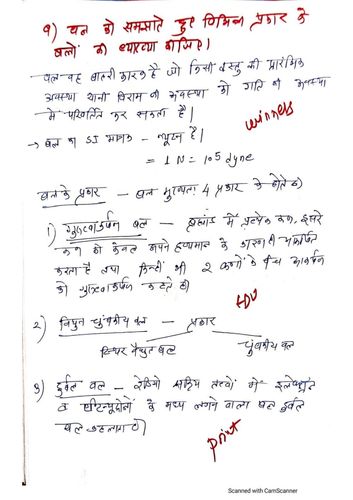 9) बल को समझाते हुए विभिन्न प्रकार के
बलों की व्याख्या कीजिए।
बल वह बाहरी कारक है जो किसी वस्तु की प्रारंभिक
अवस्था यानी विराम की अवस्था को गति की अवस्था
में परिवर्तित कर सकता है।
winners
→ बल का SI मात्रक - न्यूटन है।
= 1 N = 105 dyne
बल के प्रकार - बल मुख्यतः 4 प्रकार के होते है
1) गुरुत्वाकर्षण बल - ब्रह्मांड में प्रत्येक कण, दूसरे
कण को केवल अपने द्रव्यमान के कारण ही आकर्षित
करता है तथा किन्हीं भी 2 कणों के बीच आकर्षण
को गुरुत्वाकर्षण कहते है।
2) विद्युत चुंबकीय बल - प्रकार
स्थिर वैद्युत बल चुंबकीय बल
3) दुर्बल बल - रेडियो सक्रिय तत्वों में इलेक्ट्रॉन
व एंटीन्यूट्रीनो के मध्य लगने वाला बल दुर्बल
बल कहलाता है।
print
Scanned with CamScanner